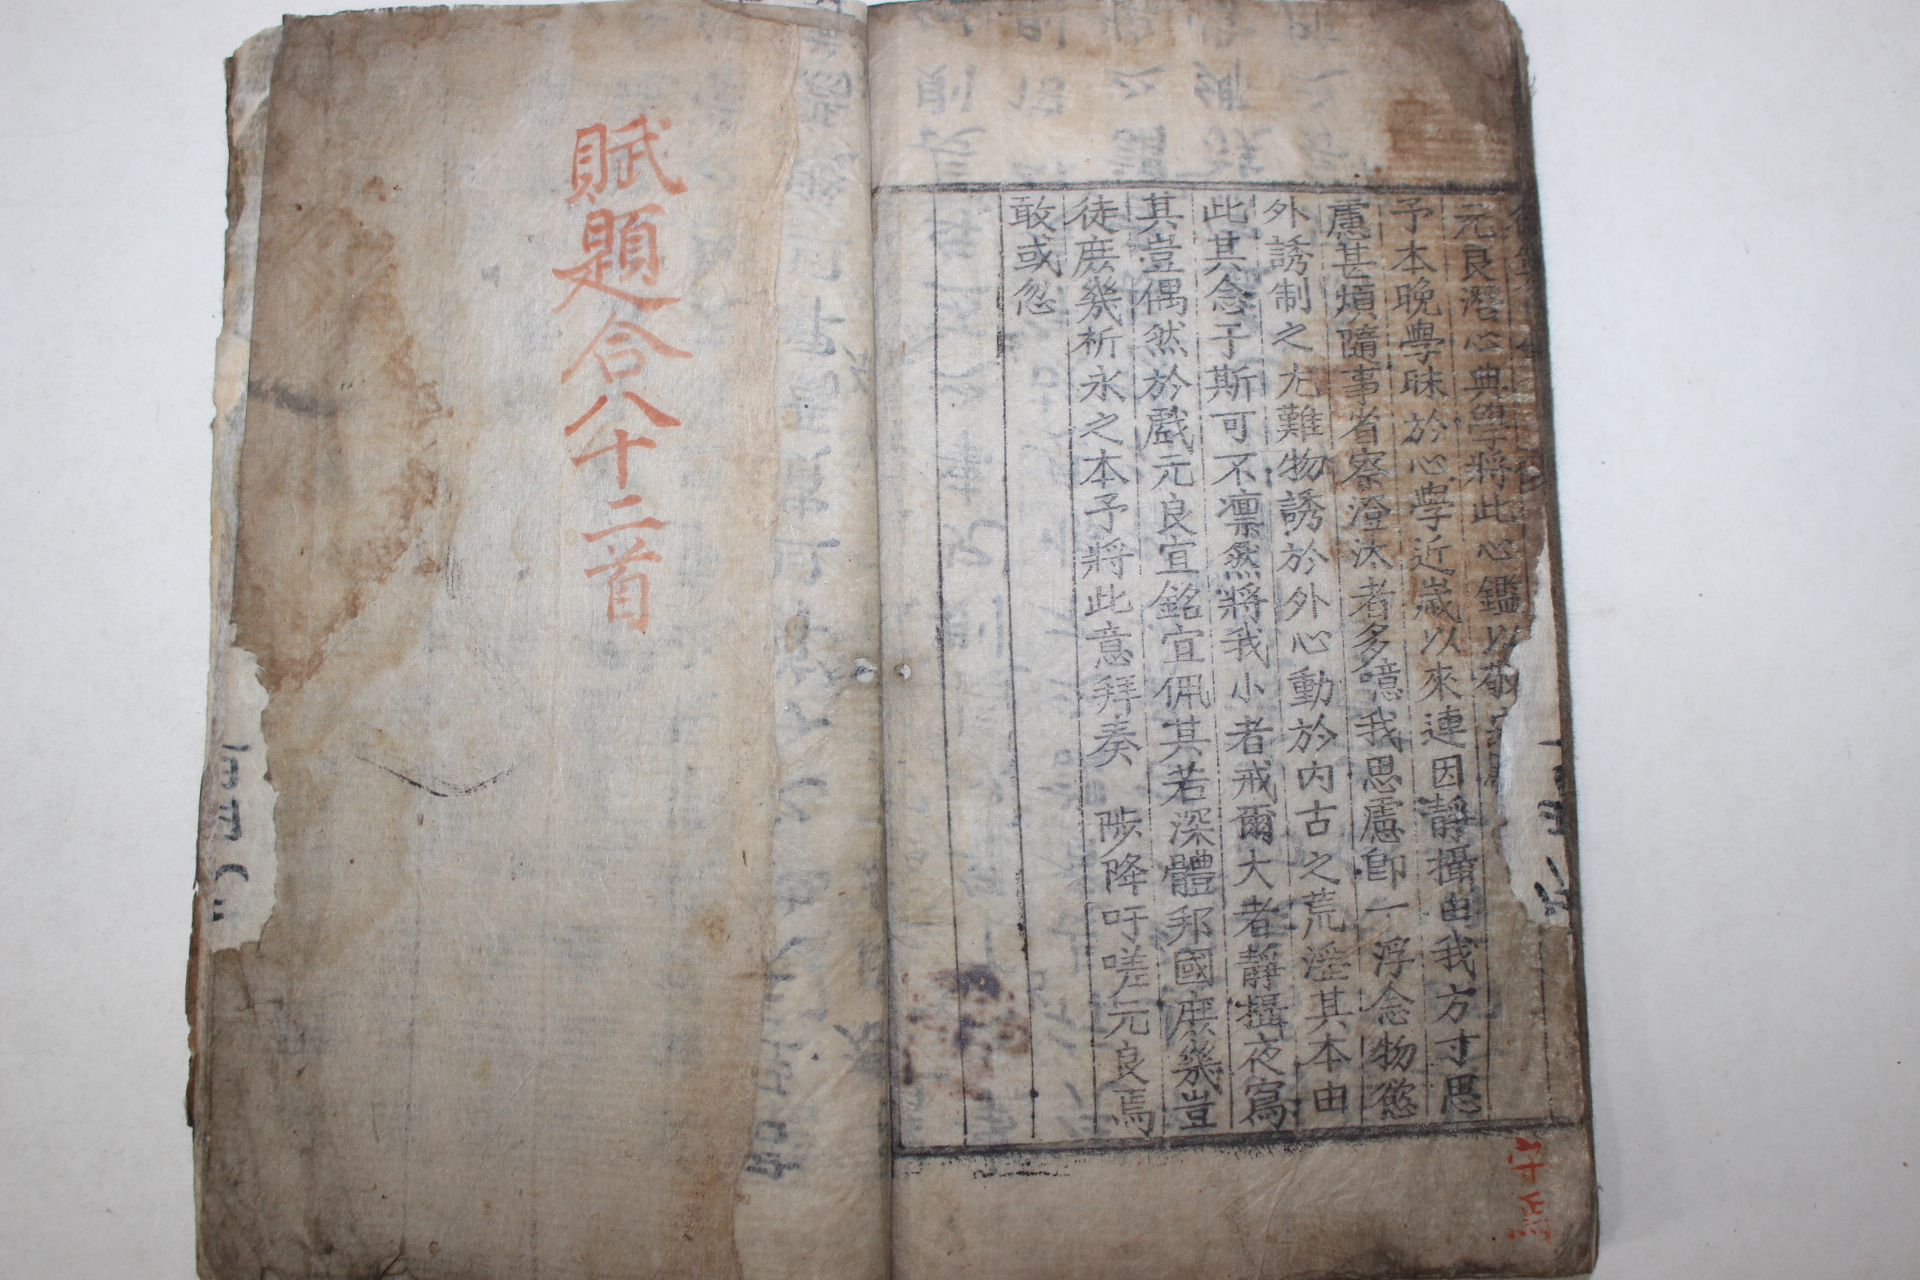 元良潛心典學將此心鑑以敬
予本晩學昧於心學近歲以來連因靜攝由我方寸思
慮甚煩隨事省察澄汰者多噫我思慮卽一浮念物慾
外誘制之尤難物誘於外心動於内古之荒淫其本由
此其念于斯可不凛然將我小者戒爾大者靜攝夜寫
其豈偶然於戲元良宜銘宜佩其若深體邦國庶幾豈
徒庶幾祈永之本予將此意拜奏 陟降吁嗟元良焉
敢或忽
賦題合八十二首